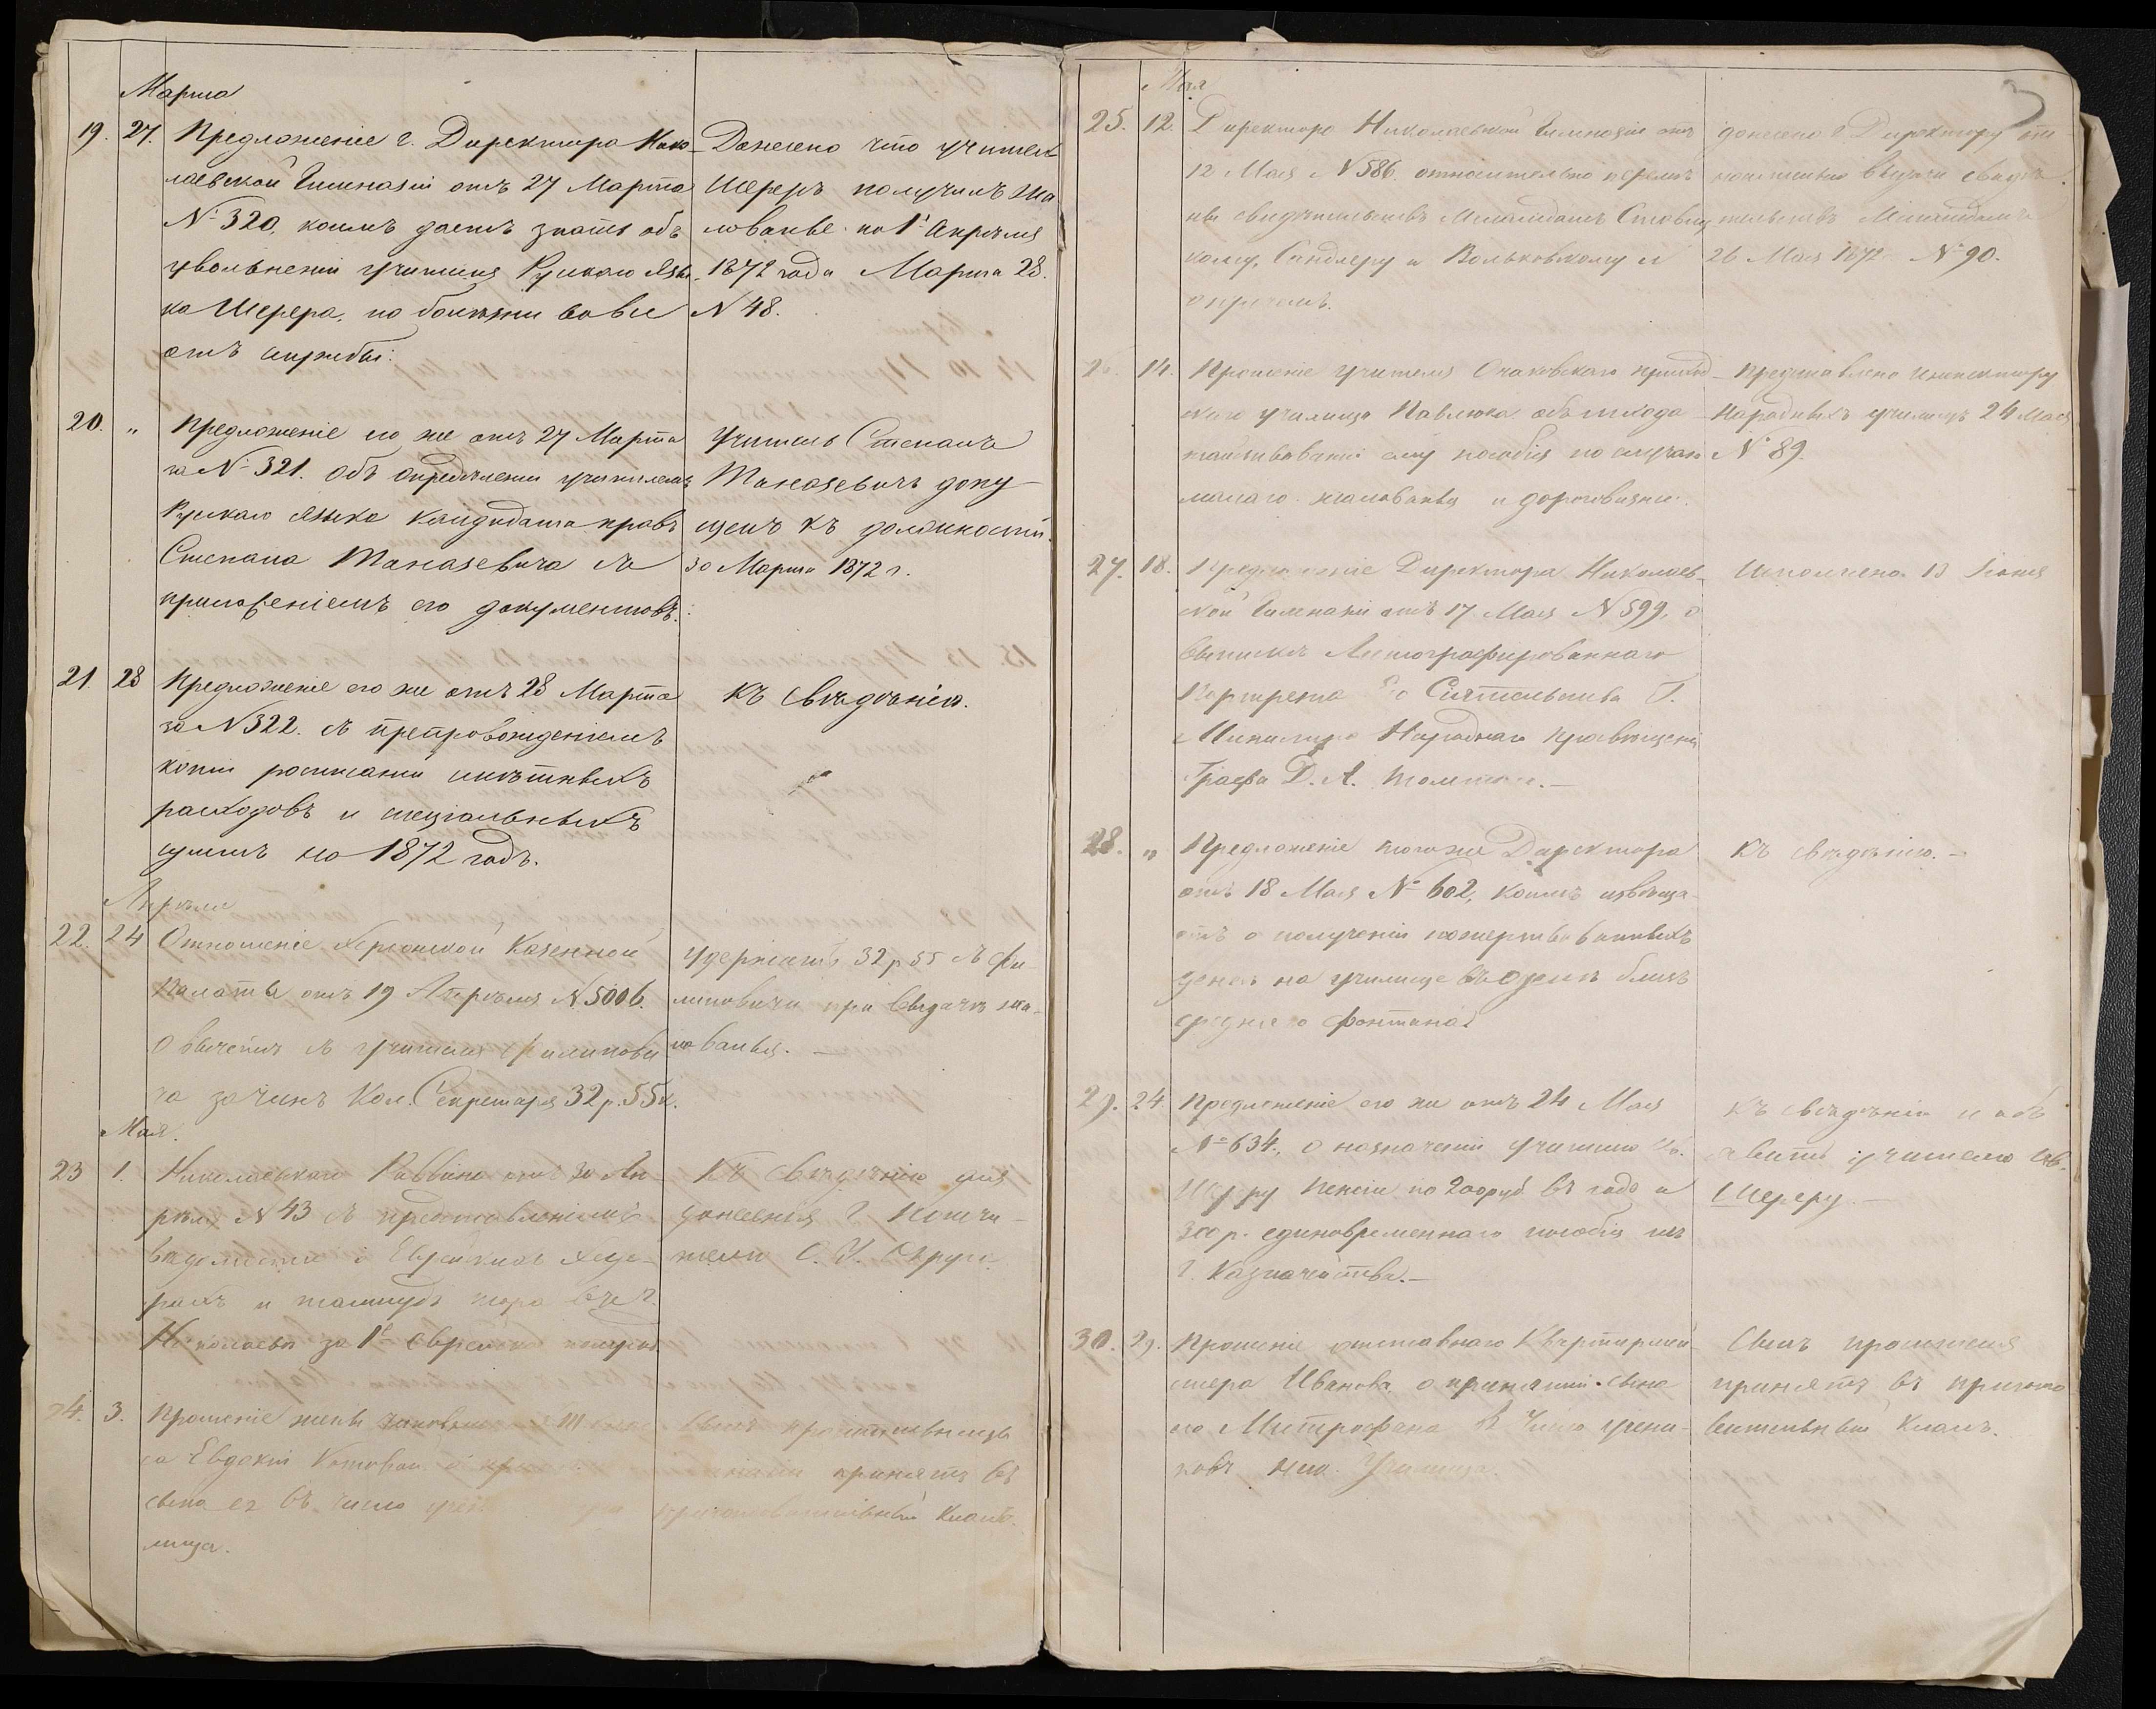 Марта
19. 27. Предложеніе г. Директора Нико-
лаевской Гимназіи отъ 27 Марта
№ 320, коимъ даетъ знать объ
увольненіи учителя Рускаго Язы-
ка Шерера, по болѣзни вовсе
отъ службы.
Донесено что учитель
Шереръ получилъ жа
лованье по 1е Апрѣля
1872 года Марта 28.
N 48.
20. „ Предложеніе его же отъ 27 Марта
за № 321. объ опредѣленіи учителемъ
Рускаго Языка Кандидата правъ
Степана Танасевича съ
приложеніемъ его документовъ.
Учитель Степанъ
Танасевичъ допу-
щенъ къ должности.
30 Марта 1872 г.
21. 28 Предложеніе его же отъ 28 Марта
за N 322. съ препровожденіемъ
копіи росписанія смѣтныхъ
расходовъ и спеціальныхъ
суммъ на 1872 годъ.
Къ свѣдѣнію.
Апрѣля
22. 24 Отношеніе Херсонской Казенной
Палаты отъ 19 Апрѣля N 5006.
О вычетѣ съ учителя Филипови
ча за чинъ Кол. Секретаря 32 р. 55 к.
Удержать 32 р 55 съ Фи-
липовича при выдачѣ жа-
лованья. —
Мая.
23 1. Николаевскаго Раввина отъ 30 Ап
рѣля N 43 съ представленіемъ
вѣдомости о Еврейскихъ хеде-
рахъ и талмудъ тора въ г.
Николаевѣ за 1е еврейское
Къ свѣдѣнію для
донесенія Г. Попечи-
телю О. У. Округа.
24. 3. Прошеніе жены
Евдокіи
сына ея въ число
лища.
принятъ въ
приготовительный классъ.
Мая
25. 12. Директора Николаевской Гимназіи отъ
12 Мая N 586. относительно
свидѣтельствъ Меламдамъ
кому, Сандлеру и Вольковскому и
донесено г. Директору от-
носительно выдачи свидѣ-
тельствъ Меламдамъ
26 Мая 1872 № 90.
26. 14. Прошеніе учителя Очаковскаго приход-
скаго училища Павлюка объ исхода-
тайствованіи ему пособія по случаю
малаго жалованья и дороговизны.
Представлено Инспектору
Народныхъ училищъ 24 Мая
№ 89.
27. 18. Предложеніе Директора Николаев-
ской Гимназіи отъ 17 Мая N 599, о
выпискѣ Литографированнаго
Портрета Его Сіятельства Г.
Министра Народнаго Просвѣщенія
Графа Д. А. Толстого. —
Исполнено 13 Іюня
28. „ Предложеніе того же Директора
отъ 18 Мая № 602, коимъ извѣща-
етъ о полученіи пожертвованныхъ
денегъ на училище близъ
средняго фонтана.
Къ свѣдѣнію. —
29. 24. Предложеніе его же отъ 24 Мая
№ 634, о назначеніи учителю
Шереру пенсіи по 200 руб въ годъ и
300 р. единовременнаго пособія изъ
Г. Казначейства. —
Къ свѣдѣнію и объ
явить учителю
Шереру. —
30. 29. Прошеніе отставнаго Квартирмей-
стера Иванова о принятіи сына
его Митрофана въ число учени-
ковъ Училища.
Сынъ просителя
принятъ въ пригото
вительный классъ.